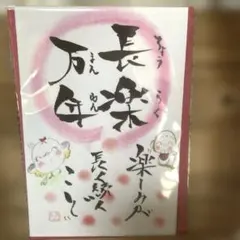 ちょう らく
長楽
まん ねん
万年
楽しみが
長く続く
こと